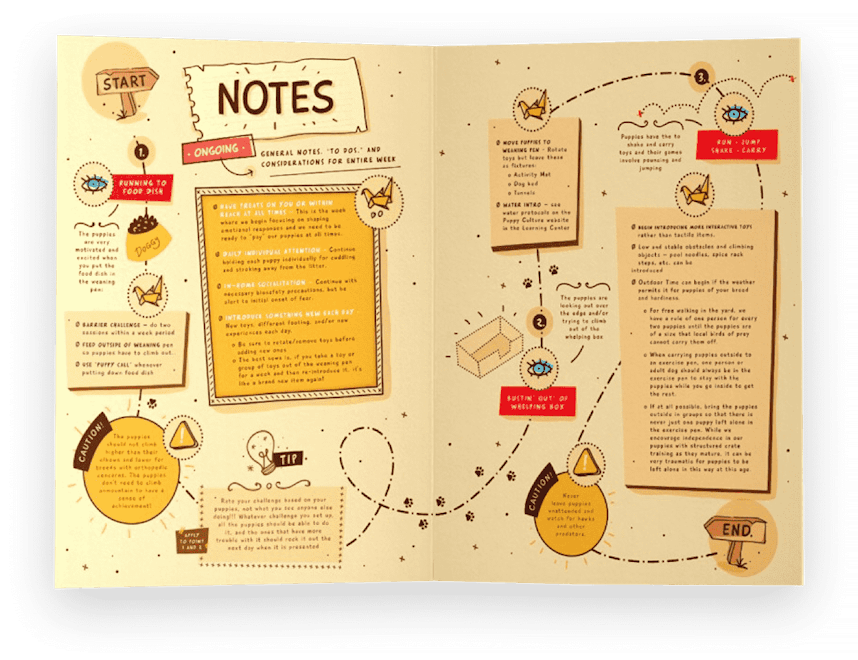 START
NOTES
ONGOING
GENERAL NOTES, "TO DOS," AND
CONSIDERATIONS FOR ENTIRE WEEK
1.
RUNNING TO
FOOD DISH
The puppies
are very
motivated and
excited when
you put the
food dish in
the weaning
pen.
DOGGY
BARRIER CHALLENGE – do two
sessions within a week period
FEED OUTSIDE OF WEANING pen
so puppies have to climb out.
USE "PUPPY CALL" whenever
putting down food dish
DO
HAVE TREATS ON YOU OR WITHIN
REACH AT ALL TIMES – This is the week
where we begin focusing on shaping
emotional responses and we need to be
ready to "pay" our puppies at all times.
DAILY INDIVIDUAL ATTENTION – Continue
holding each puppy individually for cuddling
and stroking away from the litter.
IN-HOME SOCIALIZATION – Continue with
necessary biosafety precautions, but be
alert to initial onset of fear.
INTRODUCE SOMETHING NEW EACH DAY
New toys, different footing, and/or new
experiences each day.
Be sure to rotate/remove toys before
adding new ones
The best news is, if you take a toy or
group of toys out of the weaning pen
for a week and then re-introduce it, it's
like a brand new item again!
CAUTION!
The puppies
should not climb
higher than their
elbows and lower for
breeds with orthopedic
concerns. The puppies
don't need to climb
a mountain to have a
sense of
achievement!
TIP
Rate your challenge based on your
puppies, not what you see anyone else
doing!!! Whatever challenge you set up,
all the puppies should be able to do
it, and the ones that have more
trouble with it should rock it out the
next day when it is presented
APPLY
TO POINT
1 AND 2
MOVE PUPPIES TO
WEANING PEN – Rotate
toys but leave these
as fixtures:
Activity Mat
Dog bed
Tunnels
WATER INTRO – use
water protocols on the
Puppy Culture website
in the Learning Center
2.
The puppies are
looking out over
the edge and/or
trying to climb
out of the
whelping box
BUSTIN' OUT OF
WHELPING BOX
3.
Puppies have the to
shake and carry
toys and their games
involve pouncing and
jumping
RUN - JUMP
SHAKE - CARRY
BEGIN INTRODUCING MORE INTERACTIVE TOYS
rather than tactile items.
Low and stable obstacles and climbing
objects – pool noodles, spice rack
steps, etc. can be
introduced
Outdoor Time can begin if the weather
permits it for puppies of your breed
and hardiness.
For free walking in the yard, we
have a rule of one person for every
two puppies until the puppies are
of a size that local birds of prey
cannot carry them off.
When carrying puppies outside to
an exercise pen, one person or
adult dog should always be in the
exercise pen to stay with the
puppies while you go inside to get
the rest.
If at all possible, bring the puppies
outside in groups so that there is
never just one puppy left alone in
the exercise pen. While we
encourage independence in our
puppies with structured crate
training as they mature, it can be
very traumatic for puppies to be
left alone in this way at this age.
CAUTION!
Never
leave puppies
unattended and
watch for hawks
and other
predators.
END.